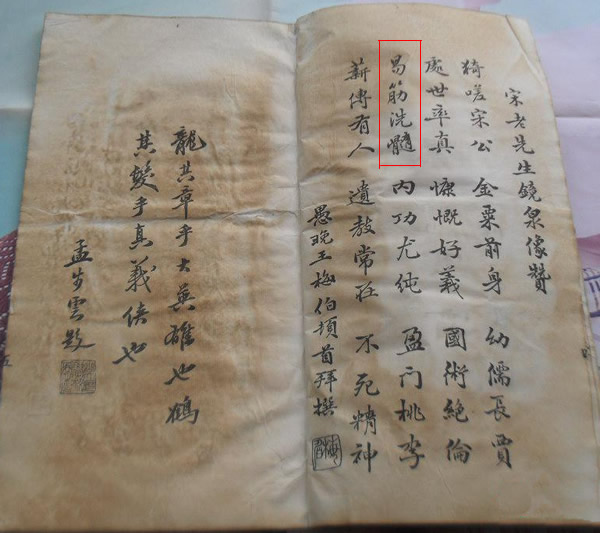 宋老先生鏡泉像贊
猗嗟宋公 金粟前身 幼儒長賈
處世率真 慷慨好義 國術絕倫
易筋洗髓 內功尤純 盈門桃李
薪傳有人 遺教常在 不死精神
愚晚王梅伯頓首拜撰
龍其章乎大英雄也鶴
其髮乎真義俠也
孟步雲題